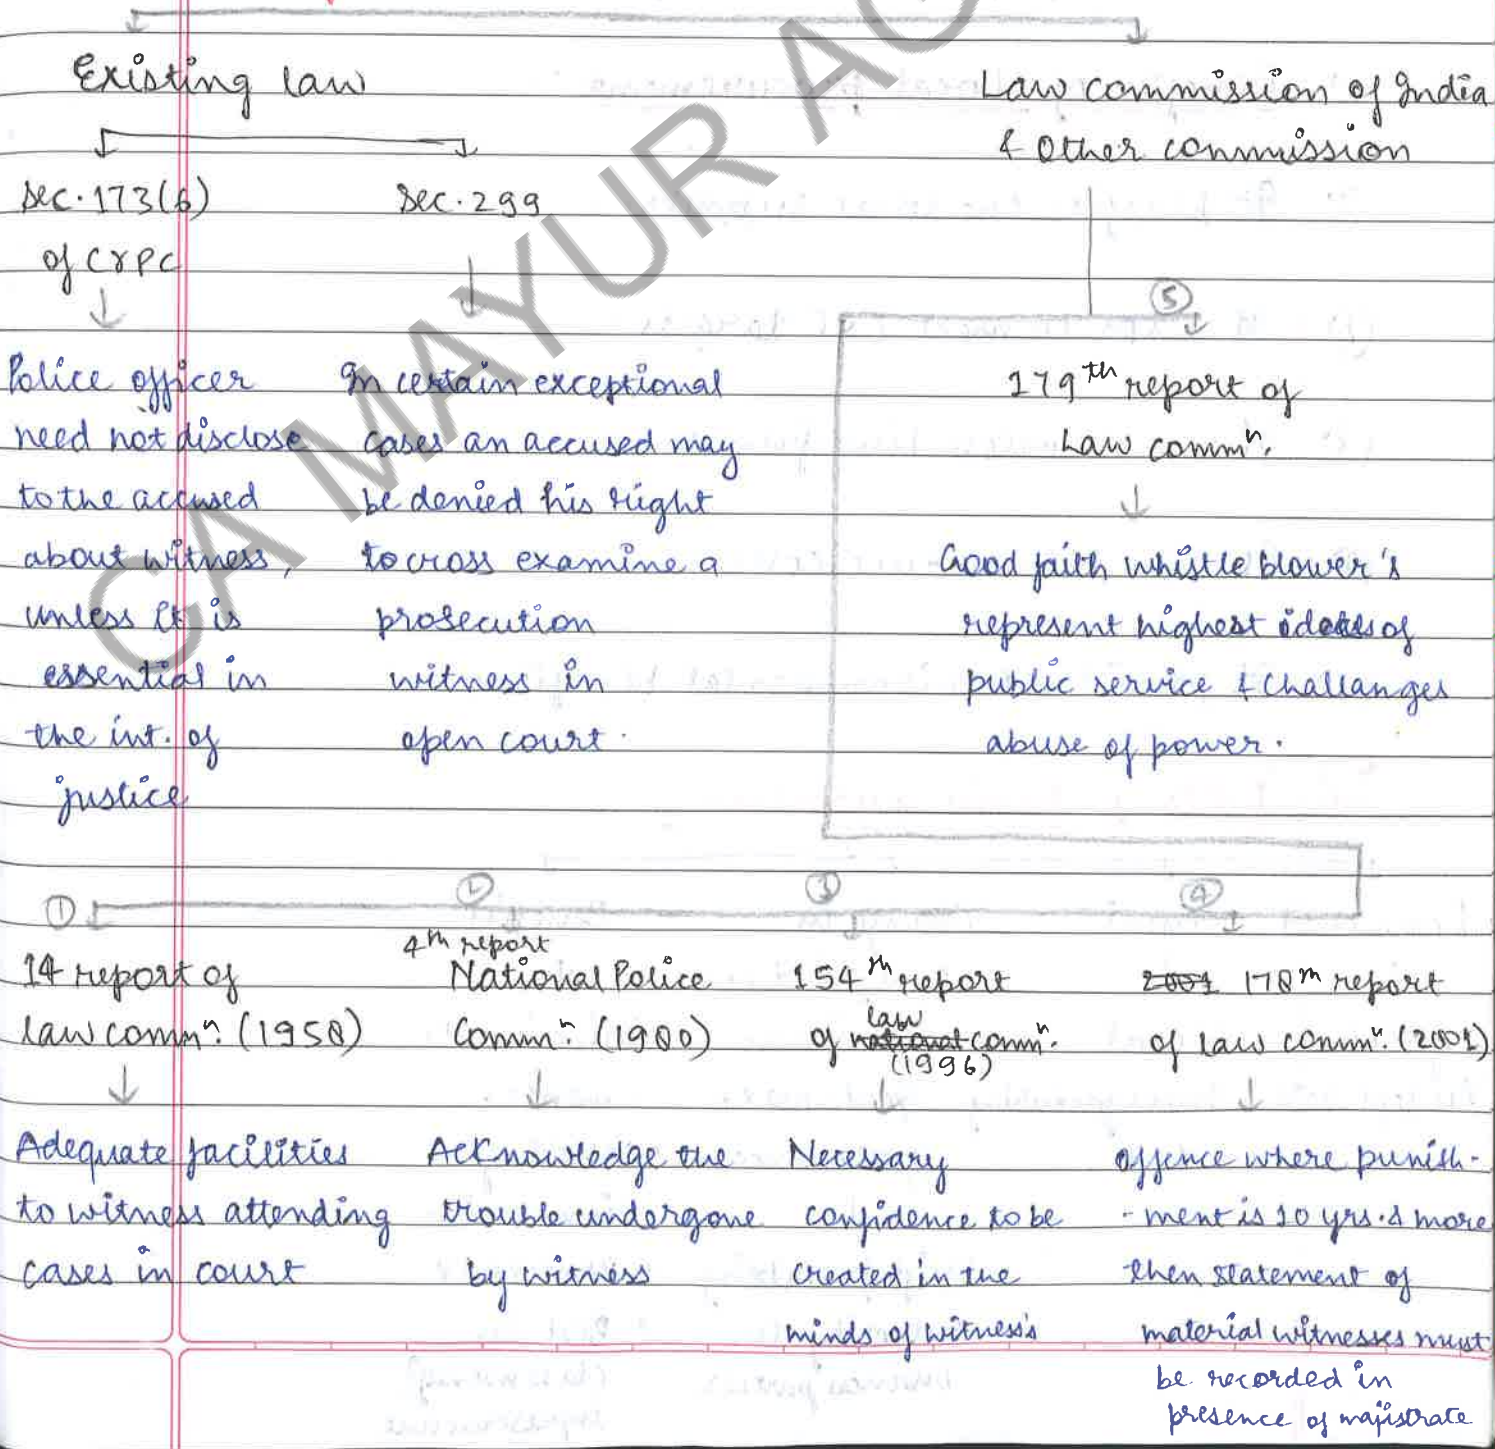 Existing law
Law commission of India
& Other commission
Sec. 173(6)
of CrPC
Sec. 299
Police officer
need not disclose
to the accused
about witness,
unless it is
essential in
the int. of
justice
In certain exceptional
cases an accused may
be denied his right
to cross examine a
prosecution
witness in
open court.
⑤
179th report of
Law commn.
Good faith whistle blower's
represent highest ideals of
public service & challanges
abuse of power.
①
14 report of
law commn. (1958)
Adequate facilities
to witness attending
cases in court
②
4th report
National Police
Commn. (1980)
Acknowledge the
trouble undergone
by witness
③
154th report
of law commn.
(1996)
Necessary
confidence to be
created in the
minds of witness's
④
2001 178th report
of law commn. (2001)
offence where punish-
-ment is 10 yrs. & more
then statement of
material witnesses must
be recorded in
presence of majistrate
CA MAYUR AG